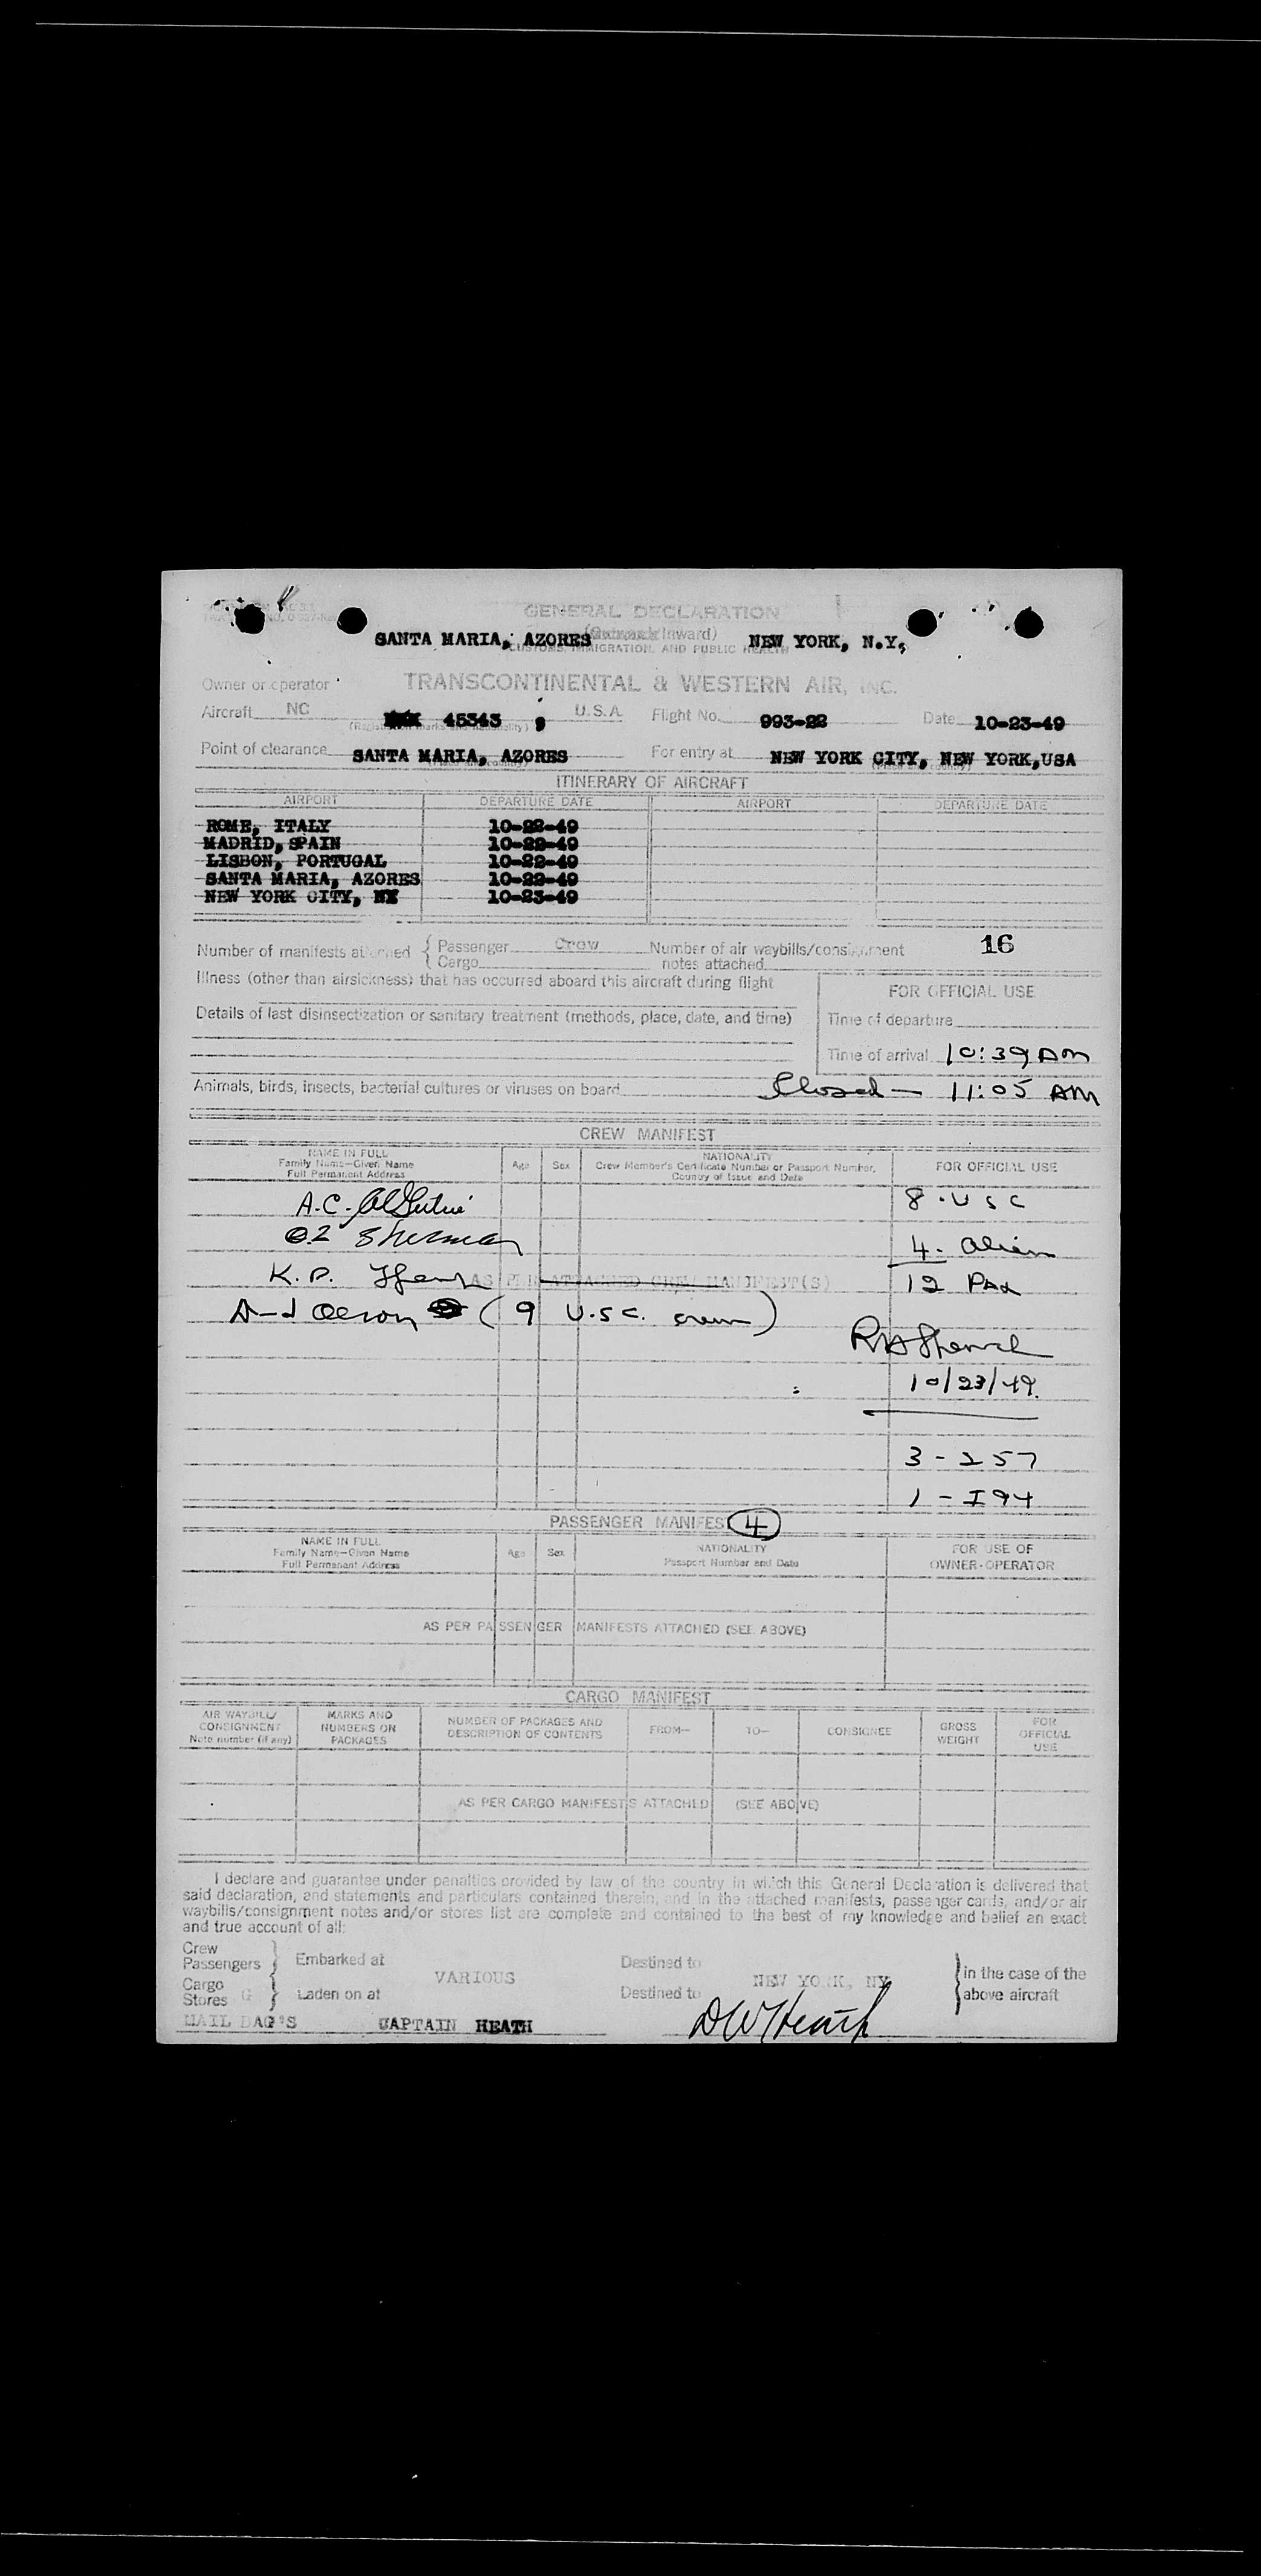 GENERAL DECLARATION
(Outward/Inward)
SANTA MARIA, AZORES NEW YORK, N.Y.
CUSTOMS, IMMIGRATION, AND PUBLIC HEALTH
Owner or operator TRANSCONTINENTAL & WESTERN AIR, INC.
Aircraft NC 45343, U.S.A. Flight No. 993-22 Date 10-23-49
(Registration marks and nationality)
Point of clearance SANTA MARIA, AZORES For entry at NEW YORK CITY, NEW YORK,USA
(Place and country) (Place and country)
ITINERARY OF AIRCRAFT
AIRPORT DEPARTURE DATE AIRPORT DEPARTURE DATE
ROME, ITALY 10-22-49
MADRID, SPAIN 10-22-49
LISBON, PORTUGAL 10-22-49
SANTA MARIA, AZORES 10-22-49
NEW YORK CITY, NY 10-23-49
Number of manifests attached { Passenger Crew Number of air waybills/consignment 16
Cargo notes attached
Illness (other than airsickness) that has occurred aboard this aircraft during flight
FOR OFFICIAL USE
Details of last disinsectization or sanitary treatment (methods, place, date, and time)
Time of departure
Time of arrival 10:39 AM
Animals, birds, insects, bacterial cultures or viruses on board Closed — 11:05 AM
CREW MANIFEST
NAME IN FULL
Family Name—Given Name
Full Permanent Address
Age Sex
NATIONALITY
Crew Member's Certificate Number or Passport Number,
Country of Issue and Date
FOR OFFICIAL USE
A.C. 8 - USC
Sherman 4. Alien
K. P. AS PER ATTACHED CREW MANIFEST(S) 12 PAX
(9 U.S.C. crew)
10/23/49.
3 - 257
1 - I94
PASSENGER MANIFEST 4
NAME IN FULL
Family Name—Given Name
Full Permanent Address
Age Sex
NATIONALITY
Passport Number and Date
FOR USE OF
OWNER-OPERATOR
AS PER PASSENGER MANIFESTS ATTACHED (SEE ABOVE)
CARGO MANIFEST
AIR WAYBILL/
CONSIGNMENT
Note number (if any)
MARKS AND
NUMBERS ON
PACKAGES
NUMBER OF PACKAGES AND
DESCRIPTION OF CONTENTS
FROM— TO— CONSIGNEE
GROSS
WEIGHT
FOR
OFFICIAL
USE
AS PER CARGO MANIFESTS ATTACHED (SEE ABOVE)
I declare and guarantee under penalties provided by law of the country in which this General Declaration is delivered that
said declaration, and statements and particulars contained therein, and in the attached manifests, passenger cards, and/or air
waybills/consignment notes and/or stores list are complete and contained to the best of my knowledge and belief an exact
and true account of all:
Crew
Passengers } Embarked at Destined to
VARIOUS NEW YORK, NY } in the case of the
Cargo
Stores } Laden on at Destined to above aircraft
MAIL BAG'S CAPTAIN HEATH DW Heath